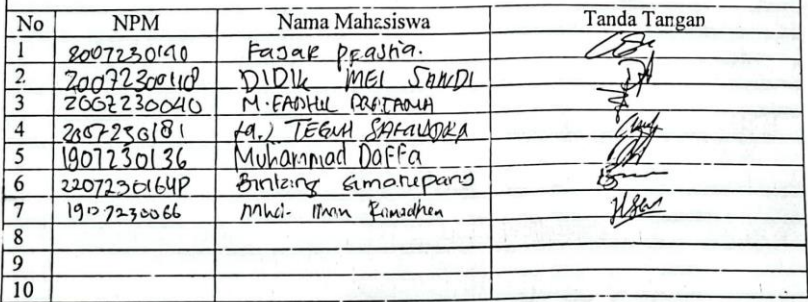 No NPM Nama Mahasiswa Tanda Tangan
1 2007230190 Fajar Prastia.
2. 2007230011P DIDIK MEI SANDI
3 2007230040 M. FADHIL PRATAMA
4 2007230181 TEGUH
5 1907230136 Muhammad Daffa
6 2207230164P Bintang Simanepang
7 1907230066 Mhd. Ilham Ramadhan
8
9
10